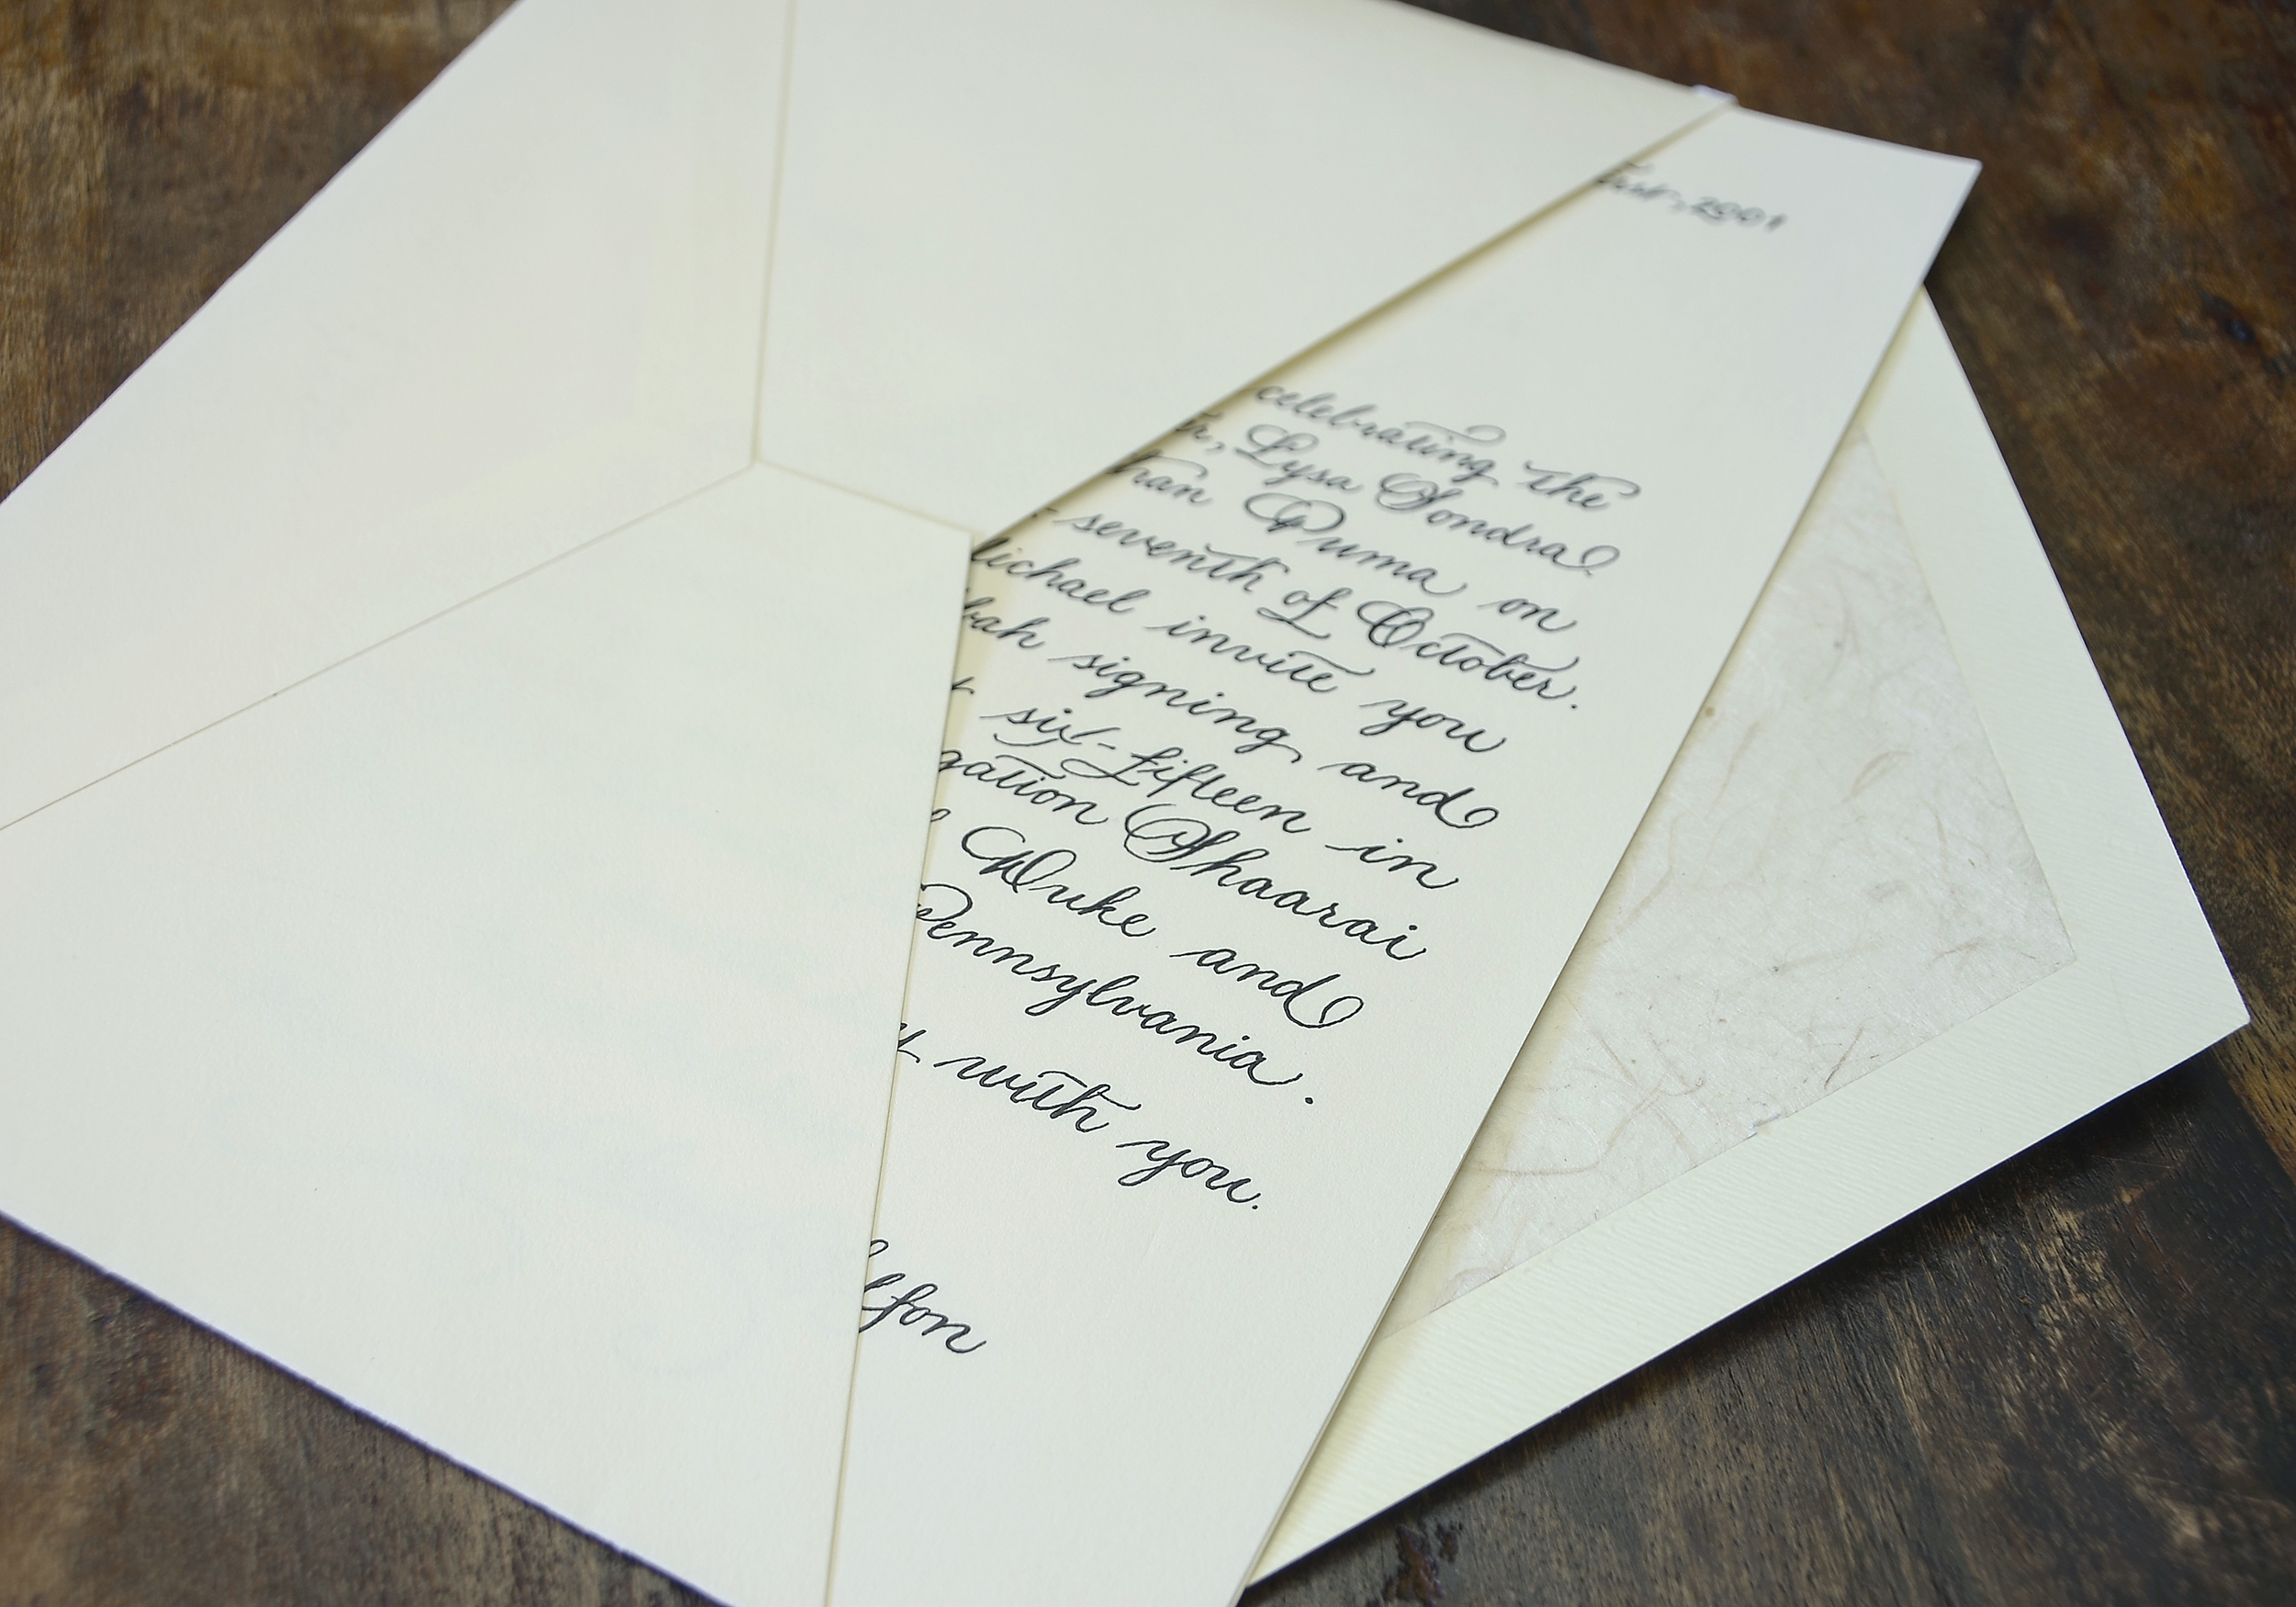 2001
celebrating the
Lysa Sondra
Puma on
seventh of October.
ichael invite you
bah signing and
six-fifteen in
gation Shaarai
Duke and
Pennsylvania.
with you.
lfon